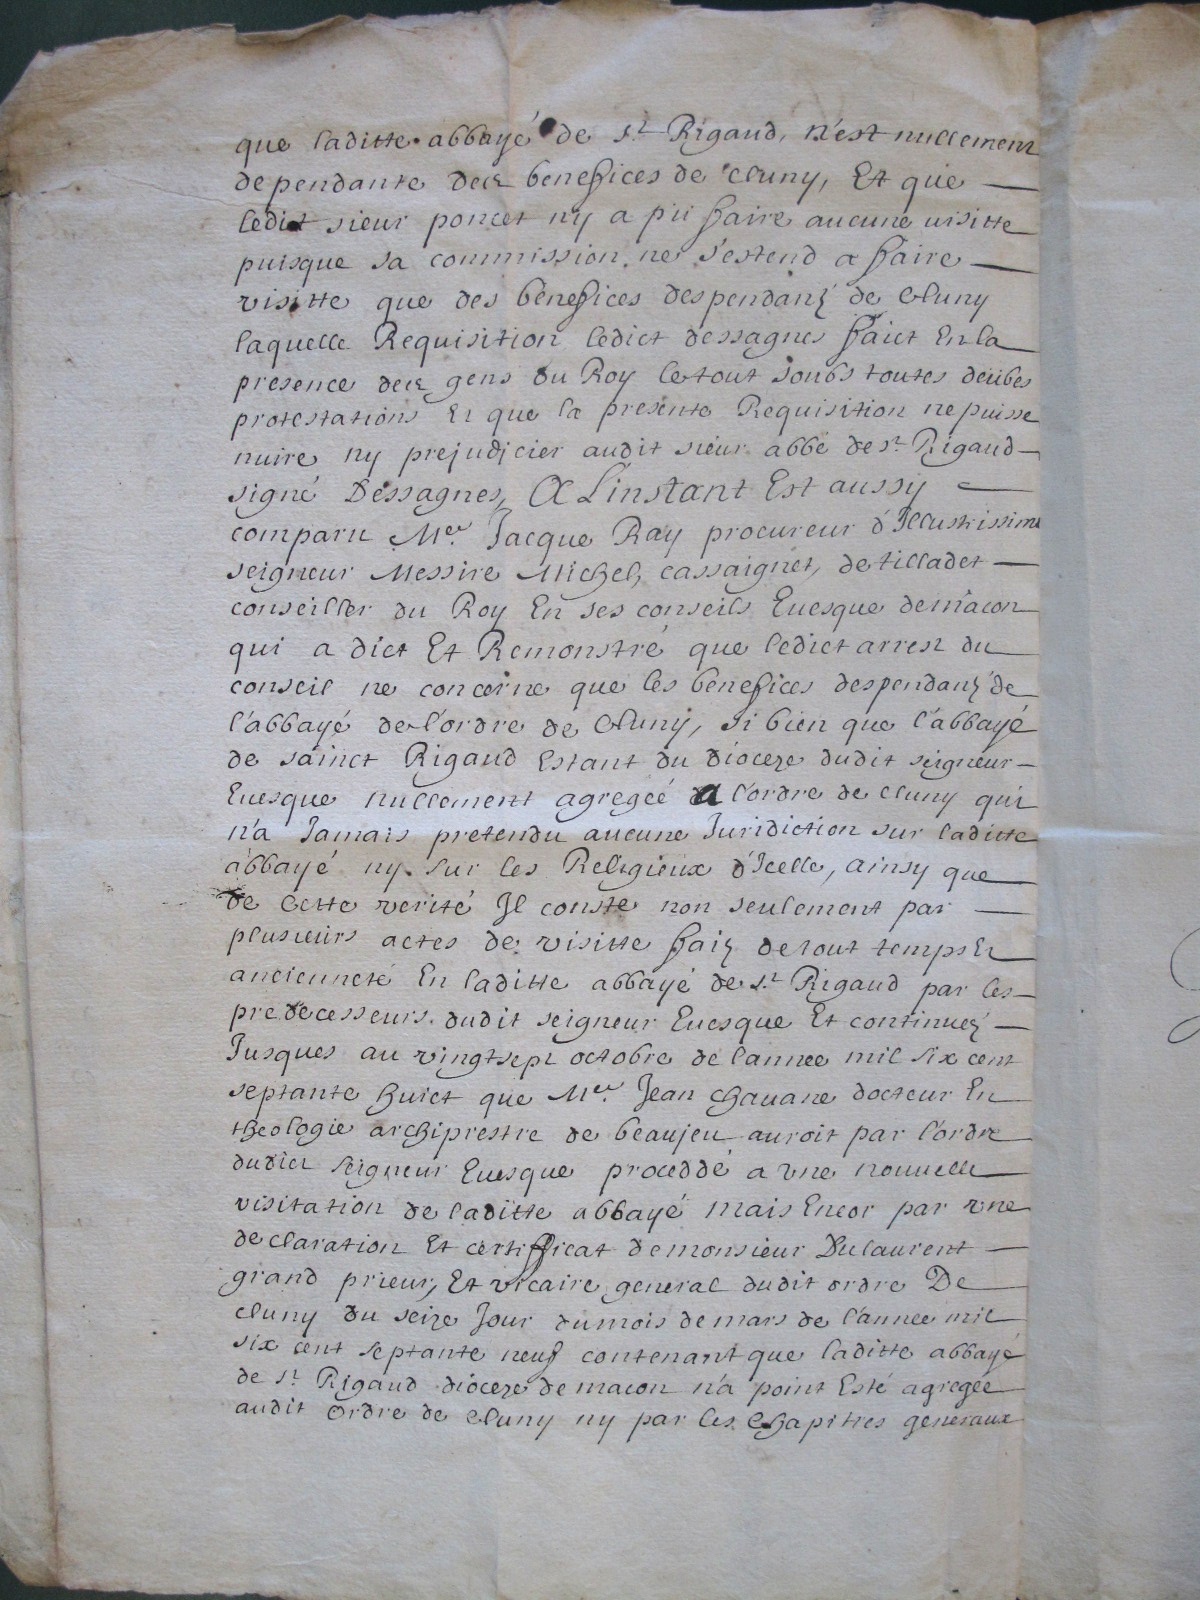 que laditte abbayé de st Rigaud, n'est nullement
dependante des benefices de cluny, Et que
ledit sieur poncet n'y a pu faire aucune uisitte
puisque sa commission ne s'estend a faire
visitte que des benefices despendanz de cluny
laquelle Requisition ledict dessagnes faict En la
presence des gens du Roy le tout soubs toutes deubes
protestations Et que la presente Requisition ne puisse
nuire ny prejudicier audit sieur abbé de st Rigaud
signé Dessagnes, A L'instant Est aussy
comparu Mer. Jacque Ray procureur d'Illustrissime
seigneur Messire Michel cassaignet, de tilladet
conseiller du Roy En ses conseils Euesque de mâcon
qui a dict Et Remonstré que ledict arrest du
conseil ne concerne que les benefices despendanz de
l'abbayé de l'ordre de cluny, si bien que l'abbayé
de sainct Rigaud Estant du dioceze dudit seigneur
Euesque nullement agregéé a l'ordre de cluny qui
n'a Jamais pretendu aucune Juridiction sur laditte
abbayé ny sur les Religieux d'Icelle, ainsy que
de cette verité Il conste non seulement par
plusieurs actes de visitte faiz de tout temps Et
ancienneté En laditte abbayé de st Rigaud par les
predecesseurs dudit seigneur Euesque Et continuez
Jusques au vingtsept octobre de l'annee mil six cent
septante huict que Mer. Jean chauane docteur En
theologie archiprestre de beaujeu auroit par l'ordre
dudict seigneur Euesque proceddé a vne nouuelle
visitation de laditte abbayé mais Encor par vne
declaration Et certifficat de monsieur Dulaurent
grand prieur, Et vicaire general dudit ordre De
cluny du seize Jour du mois de mars de l'annee mil
six cent septante neuf contenant que laditte abbayé
de st Rigaud dioceze de macon n'a point Esté agregéé
audit ordre de cluny ny par les chapitres generaux